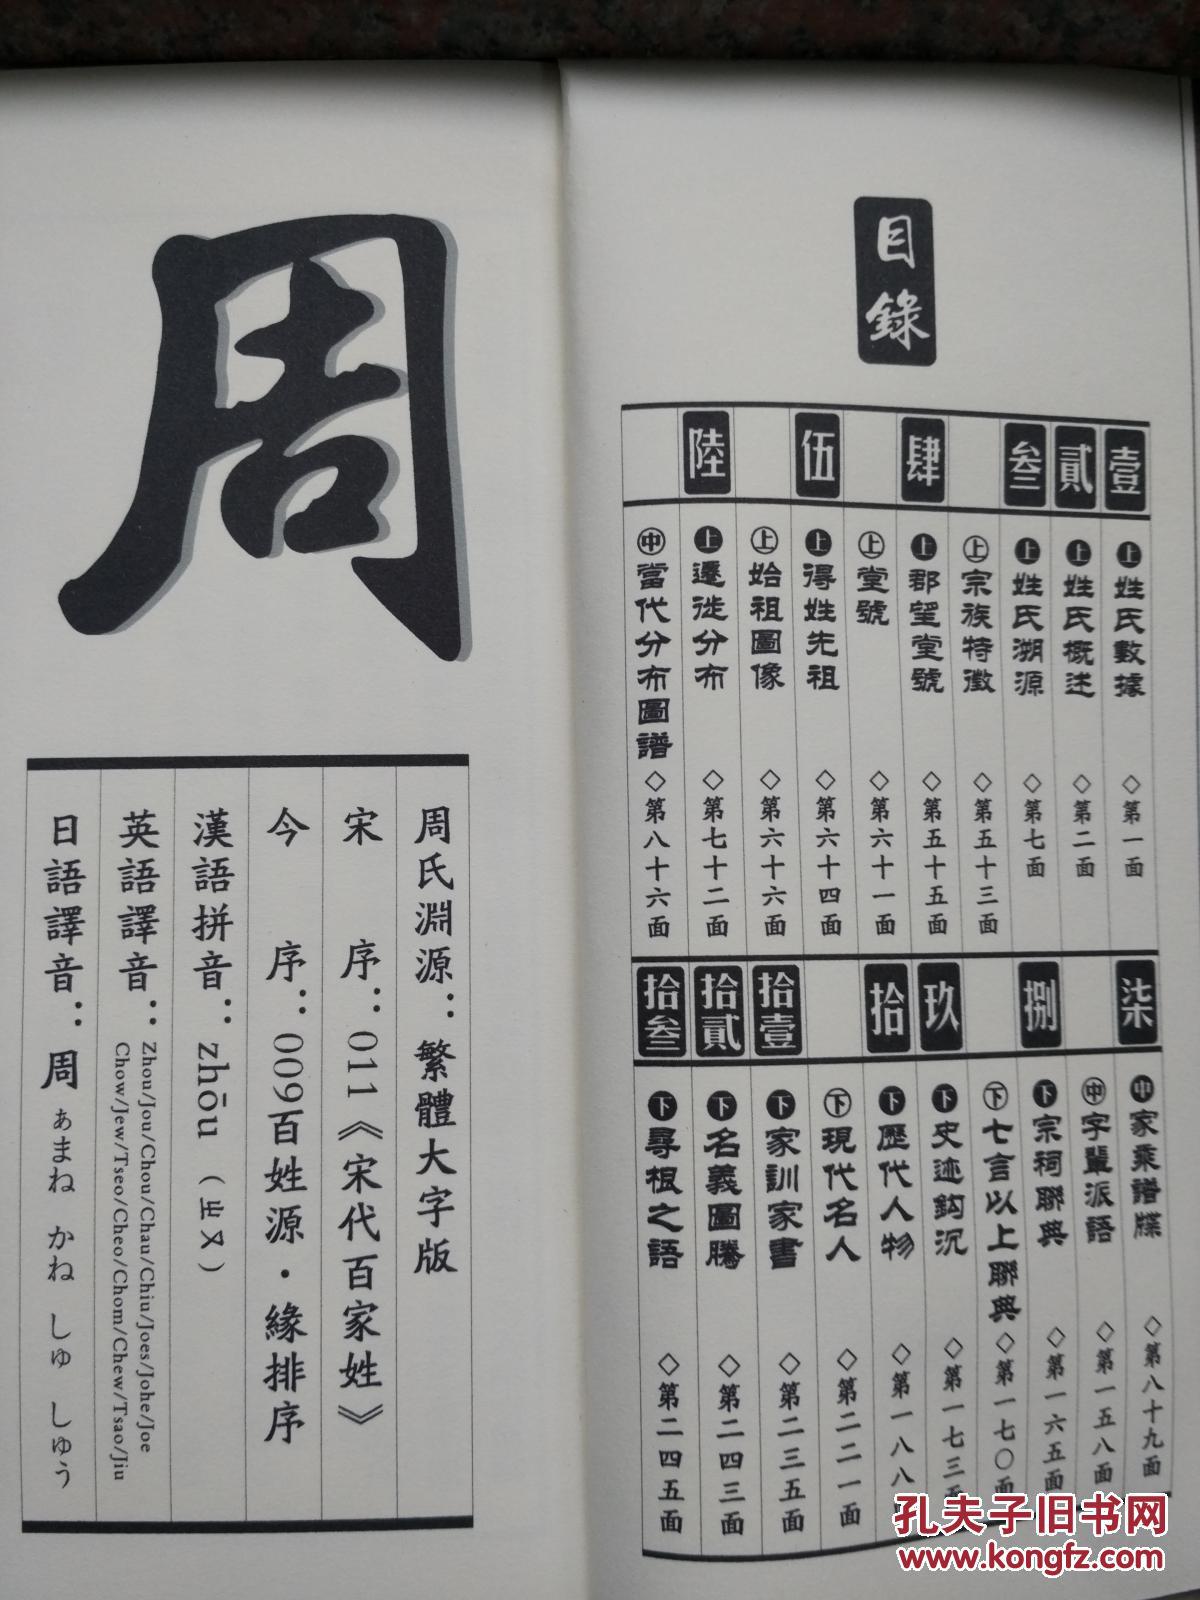 目錄
壹
上姓氏數據◇第一面
貳
上姓氏概述◇第二面
叁
上姓氏溯源◇第七面
上宗族特徵◇第五十三面
肆
上郡望堂號◇第五十五面
上堂號◇第六十一面
伍
上得姓先祖◇第六十四面
上始祖圖像◇第六十六面
陸
上遷徙分布◇第七十二面
中當代分布圖譜◇第八十六面
柒
中家乘譜牒◇第八十九面
中字輩派語◇第一五八面
捌
下宗祠聯典◇第一六五面
下七言以上聯典◇第一七〇面
玖
下史迹鈎沉◇第一七三
拾
下歷代人物◇第一八八
下現代名人◇第二二一面
拾壹
下家訓家書◇第二三五面
拾貳
下名義圖騰◇第二四三面
拾叁
下尋根之語◇第二四五面
周
周氏淵源：繁體大字版
宋 序：011《宋代百家姓》
今 序：009百姓源·緣排序
漢語拼音：zhōu（ㄓㄡ）
英語譯音：Zhou/Jou/Chou/Chau/Chiu/Joes/Johe/Joe
Chow/Jew/Tseo/Cheo/Chom/Chew/Tsao/Jiu
日語譯音：周 ぁまね かね しゅ しゅう
孔夫子旧书网
www.kongfz.com